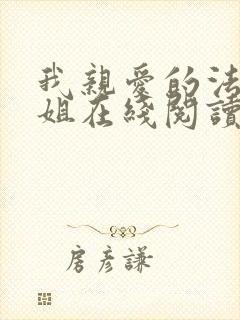 我親愛的法
姐在綫閱讀
房彥謙